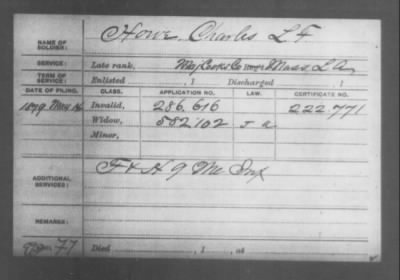 NAME OF SOLDIER: Howe, Charles L F
SERVICE: Late rank, Maj Cooks Co Mass L A
TERM OF SERVICE: Enlisted , 1 Discharged , 1
DATE OF FILING. CLASS. APPLICATION NO. LAW. CERTIFICATE NO.
1879 May Invalid, 286.616 222.771
Widow, 582102
Minor,
ADDITIONAL SERVICES: F & H 9 Me Inf
REMARKS:
Died , 1 , at